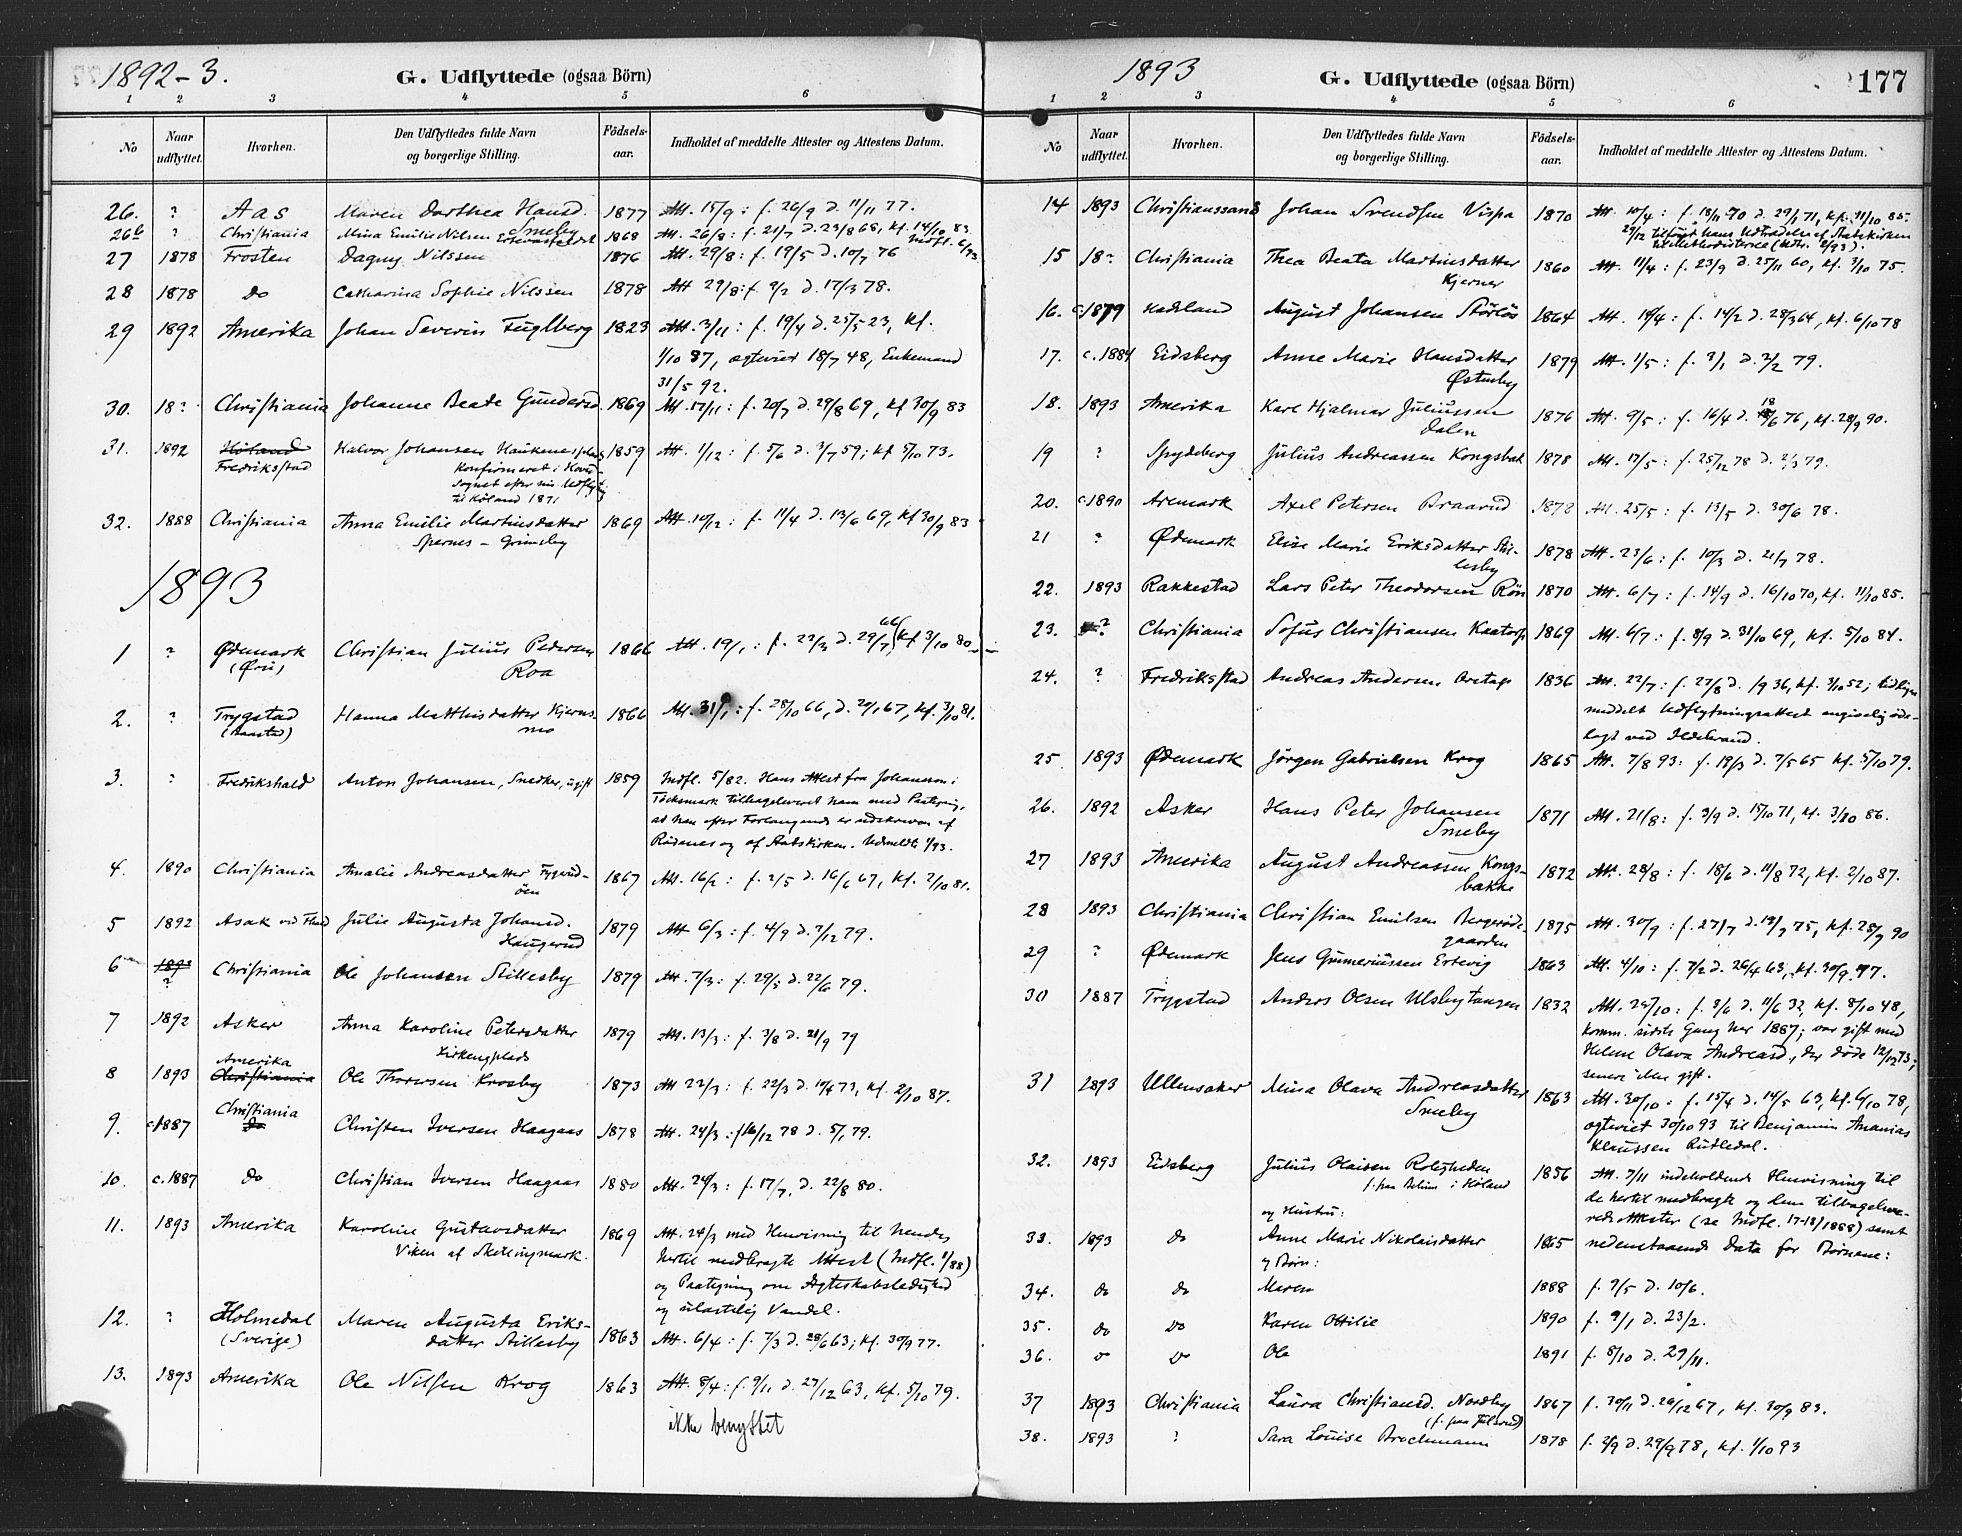 1892-3.
G. Udflyttede (ogsaa Börn)
1 2 3 4 5 6
No Naar udflyttet. Hvorhen. Den Udflyttedes fulde Navn og borgerlige Stilling. Födsels-aar. Indholdet af meddelte Attester og Attestens Datum.
26. ? Aas Maren Dorthea Hansd. Smeby 1877 Att. 15/9: f. 26/9 d. 11/11 77.
26b ? Christiania Mina Emilie Nilsen 1868 Att. 26/8: f. 21/7 d. 23/8 68, kf. 14/10 83
27 1878 Trosten Dagny Nilssen 1876 Att. 29/8: f. 19/5 d. 10/7 76
28 1878 do Catharina Sophie Nilssen 1878 Att 29/8: f. 9/2 d. 17/3 78.
29 1892 Amerika Johan Severin Fuglberg 1823 Att. 3/11: f. 19/4 d. 25/5 23, kf.
1/10 37, ægteviet 18/7 48, Enkemand
31/5 92.
30. 18? Christiania Johanne Beate Gundersd. 1869 Att. 17/11: f. 20/7 d. 29/8 69, kf 30/9 83
31. 1892 Höland Halvor Johansen 1859 Att. 1/12: f. 5/6 d. 3/7 59; kf 5/10 73.
Fredriksstad Konfirmeret i Hoved-
Sognet efter sin Udflytn.
til Höland 1871
32. 1888 Christiania Anna Emilie Martinsdatter 1869 Att. 10/12: f. 11/4 d. 13/6 69, kf 30/9 83
Spernes - Grimsby
1893
1 ? Ødemark Christian Julius Pedersen 1866 Att. 19/1: f. 22/3 d. 29/7 66 (kf 3/10 80)
(Øvri) Roa
2. ? Trygstad Hanna Matthisdatter Kjerns- 1866 Att. 31/1: f. 28/10 66, d. 29/1 67, kf. 3/10 81.
(Baastad) mo
3. ? Fredrikshald Anton Johansen, Snedker, ugift 1859 Indfl. 5/82. Hans Attest fra Johannson i
Töcksmark tilbageleveret ham med Paategn.
at han efter Forlangende er udskreven af
Rödenes og af Statskirken. Udmeldt 1/93.
4. 1890 Christiania Amalie Andreasdatter 1867 Att. 16/2: f. 2/5 d. 16/6 67, kf. 2/10 81.
5 1892 Asak ved Fhald Julie Augusta Johansd. 1879 Att 6/3: f. 4/9 d. 7/12 79.
Haugerud
6 1893 Christiania Ole Johansen Stillesby 1879 Att. 7/3: f. 29/5 d. 22/6 79.
?
7 1892 Asker Anna Karoline Petersdatter 1879 Att. 13/3: f. 3/8 d. 21/9 79
Kirkengplads
Amerika
8 1893 Christiania Ole Thoresen Krosby 1873 Att 22/3: f. 22/3 d. 14/4 73, kf. 2/10 87.
Christiania
9. c.1887 do Christen Iversen Haagaas 1878 Att. 24/3: f. 16/12 78 d. 5/1 79.
10. c.1887 do Christian Iversen Haagaas 1880 Att. 24/3: f. 17/7, d. 22/8 80.
11. 1893 Amerika Karoline Gustavsdatter 1869 Att. 24/3 med Henvisning til hendes
Viken af Skillingmark. hertil medbragte Attest (Indfl. 1/88)
og Paategning om Ægteskabsledighed
og ulastelig Vandel.
12. ? Holmedal Maren Augusta Eriks-
(Sverige) datter Stillesby 1863 Att. 6/4: f. 7/3 d. 28/6 63; kf. 30/9 77.
13. 1893 Amerika Ole Nilsen Krog 1863 Att. 8/4: f. 9/11 d. 27/12 63, kf. 5/10 79.
ikke benyttet
1893
G. Udflyttede (ogsaa Börn)
177
1 2 3 4 5 6
No Naar udflyttet. Hvorhen. Den Udflyttedes fulde Navn og borgerlige Stilling. Födsels-aar. Indholdet af meddelte Attester og Attestens Datum.
14 1893 Christianssand Johan Svendsen Vispa 1870 Att. 10/4: f. 18/11 70 d. 29/1 71, kf. 11/10 85.
29/12 tilföiet hans Udtrædelse af Statskirken
til Methodisterne (Udtr. 2/93).
15 18? Christiania Thea Beata Martinsdatter 1860 Att. 11/4: f. 23/9 d. 25/11 60, kf. 3/10 75.
Kjerner
16. c.1879 Hadeland August Johansen Störlös 1864 Att. 18/4: f. 14/2 d. 28/3 64, kf. 6/10 78
17. c.1884 Eidsberg Anne Marie Hansdatter 1879 Att. 1/5: f. 3/1 d. 2/2 79.
Østenby
18. 1893 Amerika Karl Hjalmar Juliussen 1876 Att. 9/5: f. 16/4 d. 18/6 76, kf. 28/9 90.
Dalen
19 ? Spydeberg Julius Andreassen Kongsbak 1878 Att. 17/5: f. 25/12 78 d. 2/3 79.
20. c.1890 Aremark Axel Petersen Braarud 1878 Att. 25/5: f. 13/5 d. 30/6 78.
21 ? Ødemark Elise Marie Eriksdatter Stil- 1878 Att. 23/6: f. 10/3 d. 21/7 78.
lesby
22. 1893 Rakkestad Lars Peter Theodorsen Rön 1870 Att. 6/7: f. 14/9 d. 16/10 70, kf. 11/10 85.
23. ? Christiania Sofus Christiansen Kaatorp 1869 Att. 6/7: f. 8/9 d. 31/10 69, kf. 5/10 84.
24. ? Fredriksstad Andreas Andersen 1836 Att. 22/7: f. 27/8 d. /9 36, kf. 3/10 52; tidligere
meddelt Udflytningsattest angivelig öde-
lagt ved Ildebrand.
25. 1893 Ødemark Jörgen Gabrielsen Krog 1865 Att. 7/8 93: f. 19/3 d. 7/5 65 kf. 5/10 79.
26. 1892 Asker Hans Peter Johansen 1871 Att. 21/8: f. 3/9 d. 15/10 71, kf. 3/10 86.
Smeby
27 1893 Amerika August Andreassen Kongs- 1872 Att. 28/8: f. 18/6 d. 11/8 72, kf. 2/10 87.
bakke
28 1893 Christiania Christian Emilsen Bergeröde- 1875 Att. 30/9: f. 27/7 d. 19/9 75, kf. 28/9 90
gaarden
29 ? Ødemark Jens Gumeriussen Ertevig 1863 Att. 4/10: f. 7/2 d. 26/4 63, kf. 30/9 77.
30 1887 Trygstad Anders Olsen Ulsbytangen 1832 Att. 25/10: f. 3/6 d. 11/6 32, kf. 8/10 48,
komm. sidste Gang her 1887; var gift med
Helene Olava Andreasd., der döde 12/12 73;
senere ikke gift.
31 1893 Ullensaker Mina Olava Andreasdatter 1863 Att. 30/10: f. 15/4 d. 14/5 63, kf. 6/10 78,
Smeby ægteviet 30/10 93 til Benjamin Ananias
Klaussen Rutledal.
32. 1893 Eidsberg Julius Olaisen Roligheden 1856 Att. 7/11 indeholdende Henvisning til
i Höland de hertil medbragte og dem tilbageleve-
og Hustru: rede Attester (se Indfl. 17-18/1888) samt
33. 1893 do Anne Marie Nikolaisdatter 1865 nedenstaaende Data for Börnene:
og Börn:
34. do do Maren 1888 f. 9/5 d. 10/6.
35. do do Karen Ottilie 1890 f. 9/1 d. 23/2.
36. do do Ole 1891 f. 8/10 d. 29/11.
37 1893 Christiania Laura Christiansd. Nordby 1867 f. 30/11 d. 26/12 67, kf. 30/9 83.
38. 1893 ? Sara Louise Brochmann 1878 f. 2/9 d. 29/9 78, kf. 1/10 93